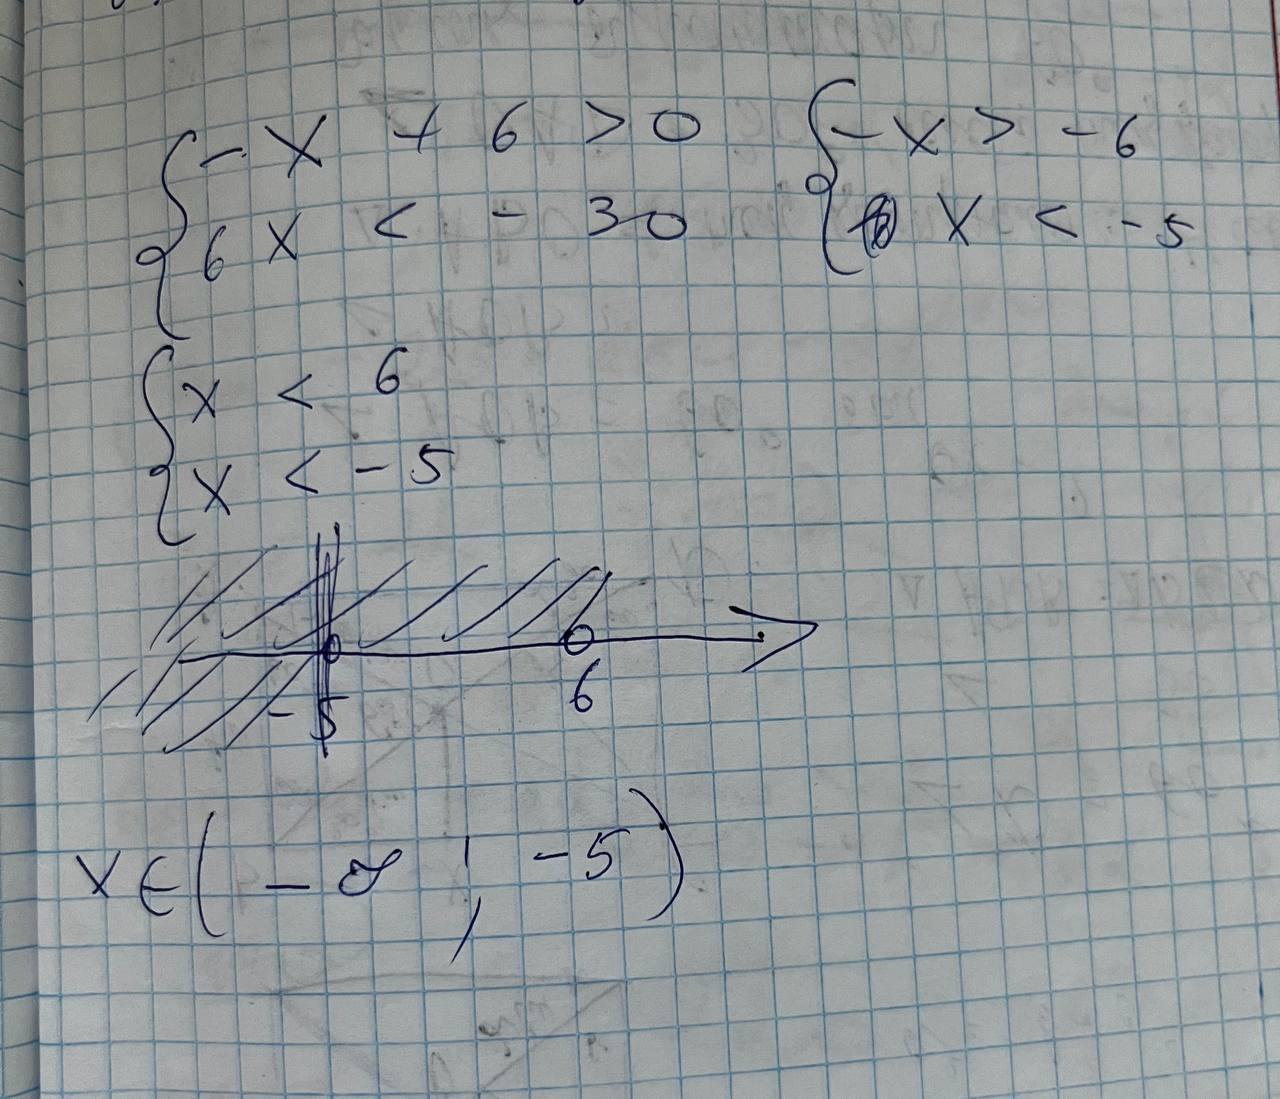 - x + 6 > 0
6 x < - 30
- x > - 6
x < - 5
x < 6
x < - 5
- 5 6
x ∈ ( - ∞ ; - 5 )